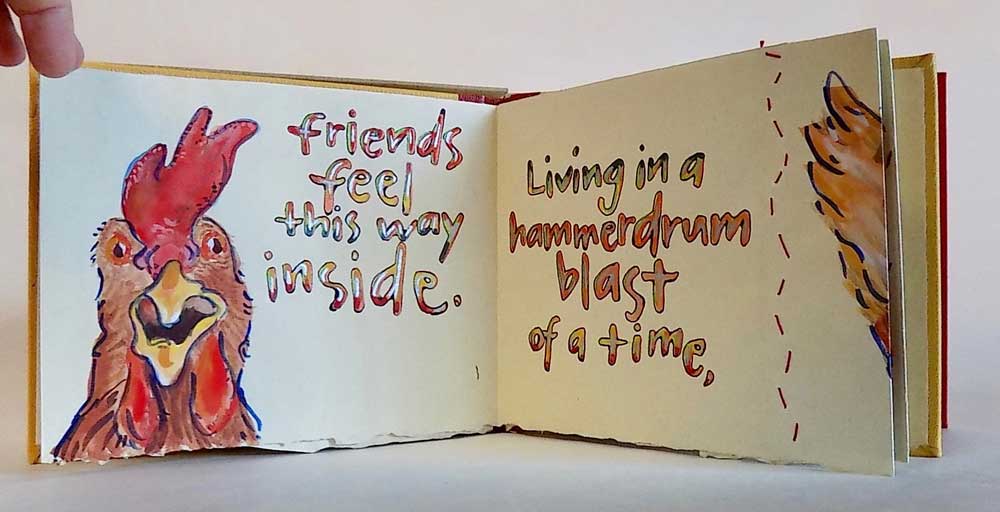 friends
feel
this way
inside.
Living in a
hammerdrum
blast
of a time,